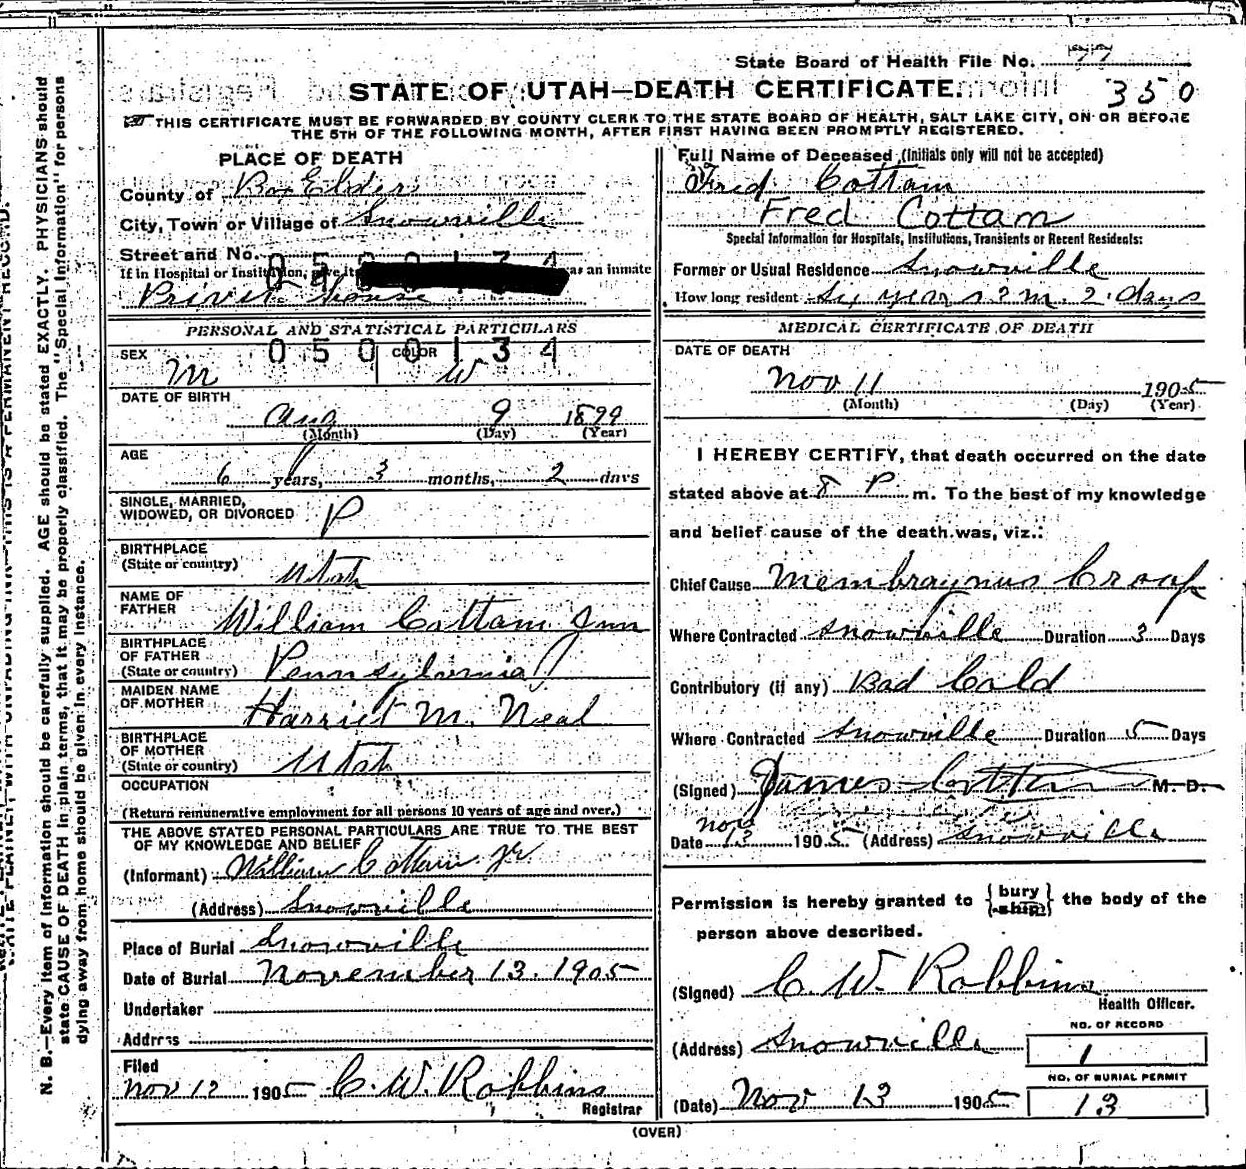 State Board of Health File No. 77
STATE OF UTAH—DEATH CERTIFICATE.
350
THIS CERTIFICATE MUST BE FORWARDED BY COUNTY CLERK TO THE STATE BOARD OF HEALTH, SALT LAKE CITY, ON OR BEFORE
THE 5TH OF THE FOLLOWING MONTH, AFTER FIRST HAVING BEEN PROMPTLY REGISTERED.
PLACE OF DEATH
County of Box Elder
City, Town or Village of Snowville
Street and No.
0500134
If in Hospital or Institution, give its as an inmate
Privit house
PERSONAL AND STATISTICAL PARTICULARS
0500134
SEX M COLOR W
DATE OF BIRTH
Aug 9 1899
(Month) (Day) (Year)
AGE
6 years, 3 months, 2 days
SINGLE, MARRIED,
WIDOWED, OR DIVORCED
BIRTHPLACE
(State or country) Utah
NAME OF
FATHER William Cottam Jun
BIRTHPLACE
OF FATHER
(State or country) Pennsylvania
MAIDEN NAME
OF MOTHER Harriet M. Neal
BIRTHPLACE
OF MOTHER
(State or country) Utah
OCCUPATION
(Return remunerative employment for all persons 10 years of age and over.)
THE ABOVE STATED PERSONAL PARTICULARS ARE TRUE TO THE BEST
OF MY KNOWLEDGE AND BELIEF
(Informant) William Cottam Jr
(Address) Snowville
Place of Burial Snowville
Date of Burial November 13. 1905
Undertaker
Address
Filed
Nov 12 1905 C. W. Robbins
Registrar
Full Name of Deceased (Initials only will not be accepted)
Fred Cottam
Fred Cottam
Special Information for Hospitals, Institutions, Transients or Recent Residents:
Former or Usual Residence Snowville
How long resident years 3 m. 2 days
MEDICAL CERTIFICATE OF DEATH
DATE OF DEATH
Nov 11 1905
(Month) (Day) (Year)
I HEREBY CERTIFY, that death occurred on the date
stated above at 8 P m. To the best of my knowledge
and belief cause of the death was, viz.:
Chief Cause Membraynus Croap
Where Contracted Snowville Duration 3 Days
Contributory (if any) Bad Cold
Where Contracted Snowville Duration 5 Days
(Signed) James Cottam M. D.
Nov
Date 13 1905. (Address) Snowville
Permission is hereby granted to {bury
ship} the body of the
person above described.
(Signed) C. W. Robbins
Health Officer.
(Address) Snowville
NO. OF RECORD
1
(Date) Nov 13 1905
NO. OF BURIAL PERMIT
13
(OVER)
N. B.—Every item of information should be carefully supplied. AGE should be stated EXACTLY. PHYSICIANS should
state CAUSE OF DEATH in plain terms, that it may be properly classified. The "Special Information" for persons
dying away from home should be given in every instance.